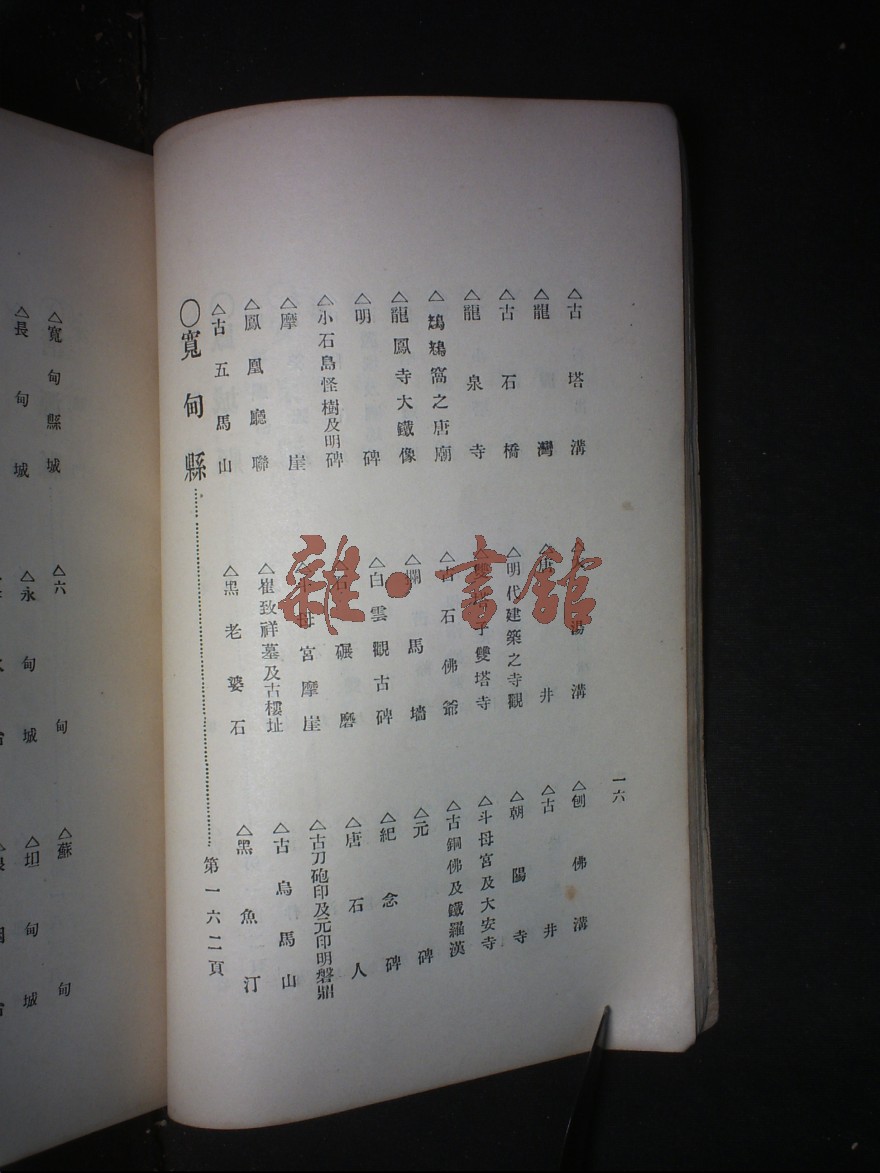 一六
△古塔溝
湯溝
△刨佛溝
△龍灣
井
△古井
△古石橋
△明代建築之寺觀
△朝陽寺
△龍泉寺
△雙塔子雙塔寺
△斗母宮及大安寺
窩之唐廟
△古石佛爺
△古銅佛及鐵羅漢
△龍鳳寺大鐵像
馬墻
△元碑
△明碑
△白雲觀古碑
△紀念碑
△小石島怪樹及明碑
△石碾磨
△唐石人
△摩崖
△斗母宮摩崖
△古刀砲印及元印明磬鼎
△鳳凰廳聯
△崔致祥墓及古樓址
△古烏馬山
△古五馬山
△黑老婆石
△黑魚汀
○寬甸縣………………第一六二頁
△寬甸縣城
△六甸
△蘇甸
△長甸城
△永甸城
△坦甸城
雜·書館